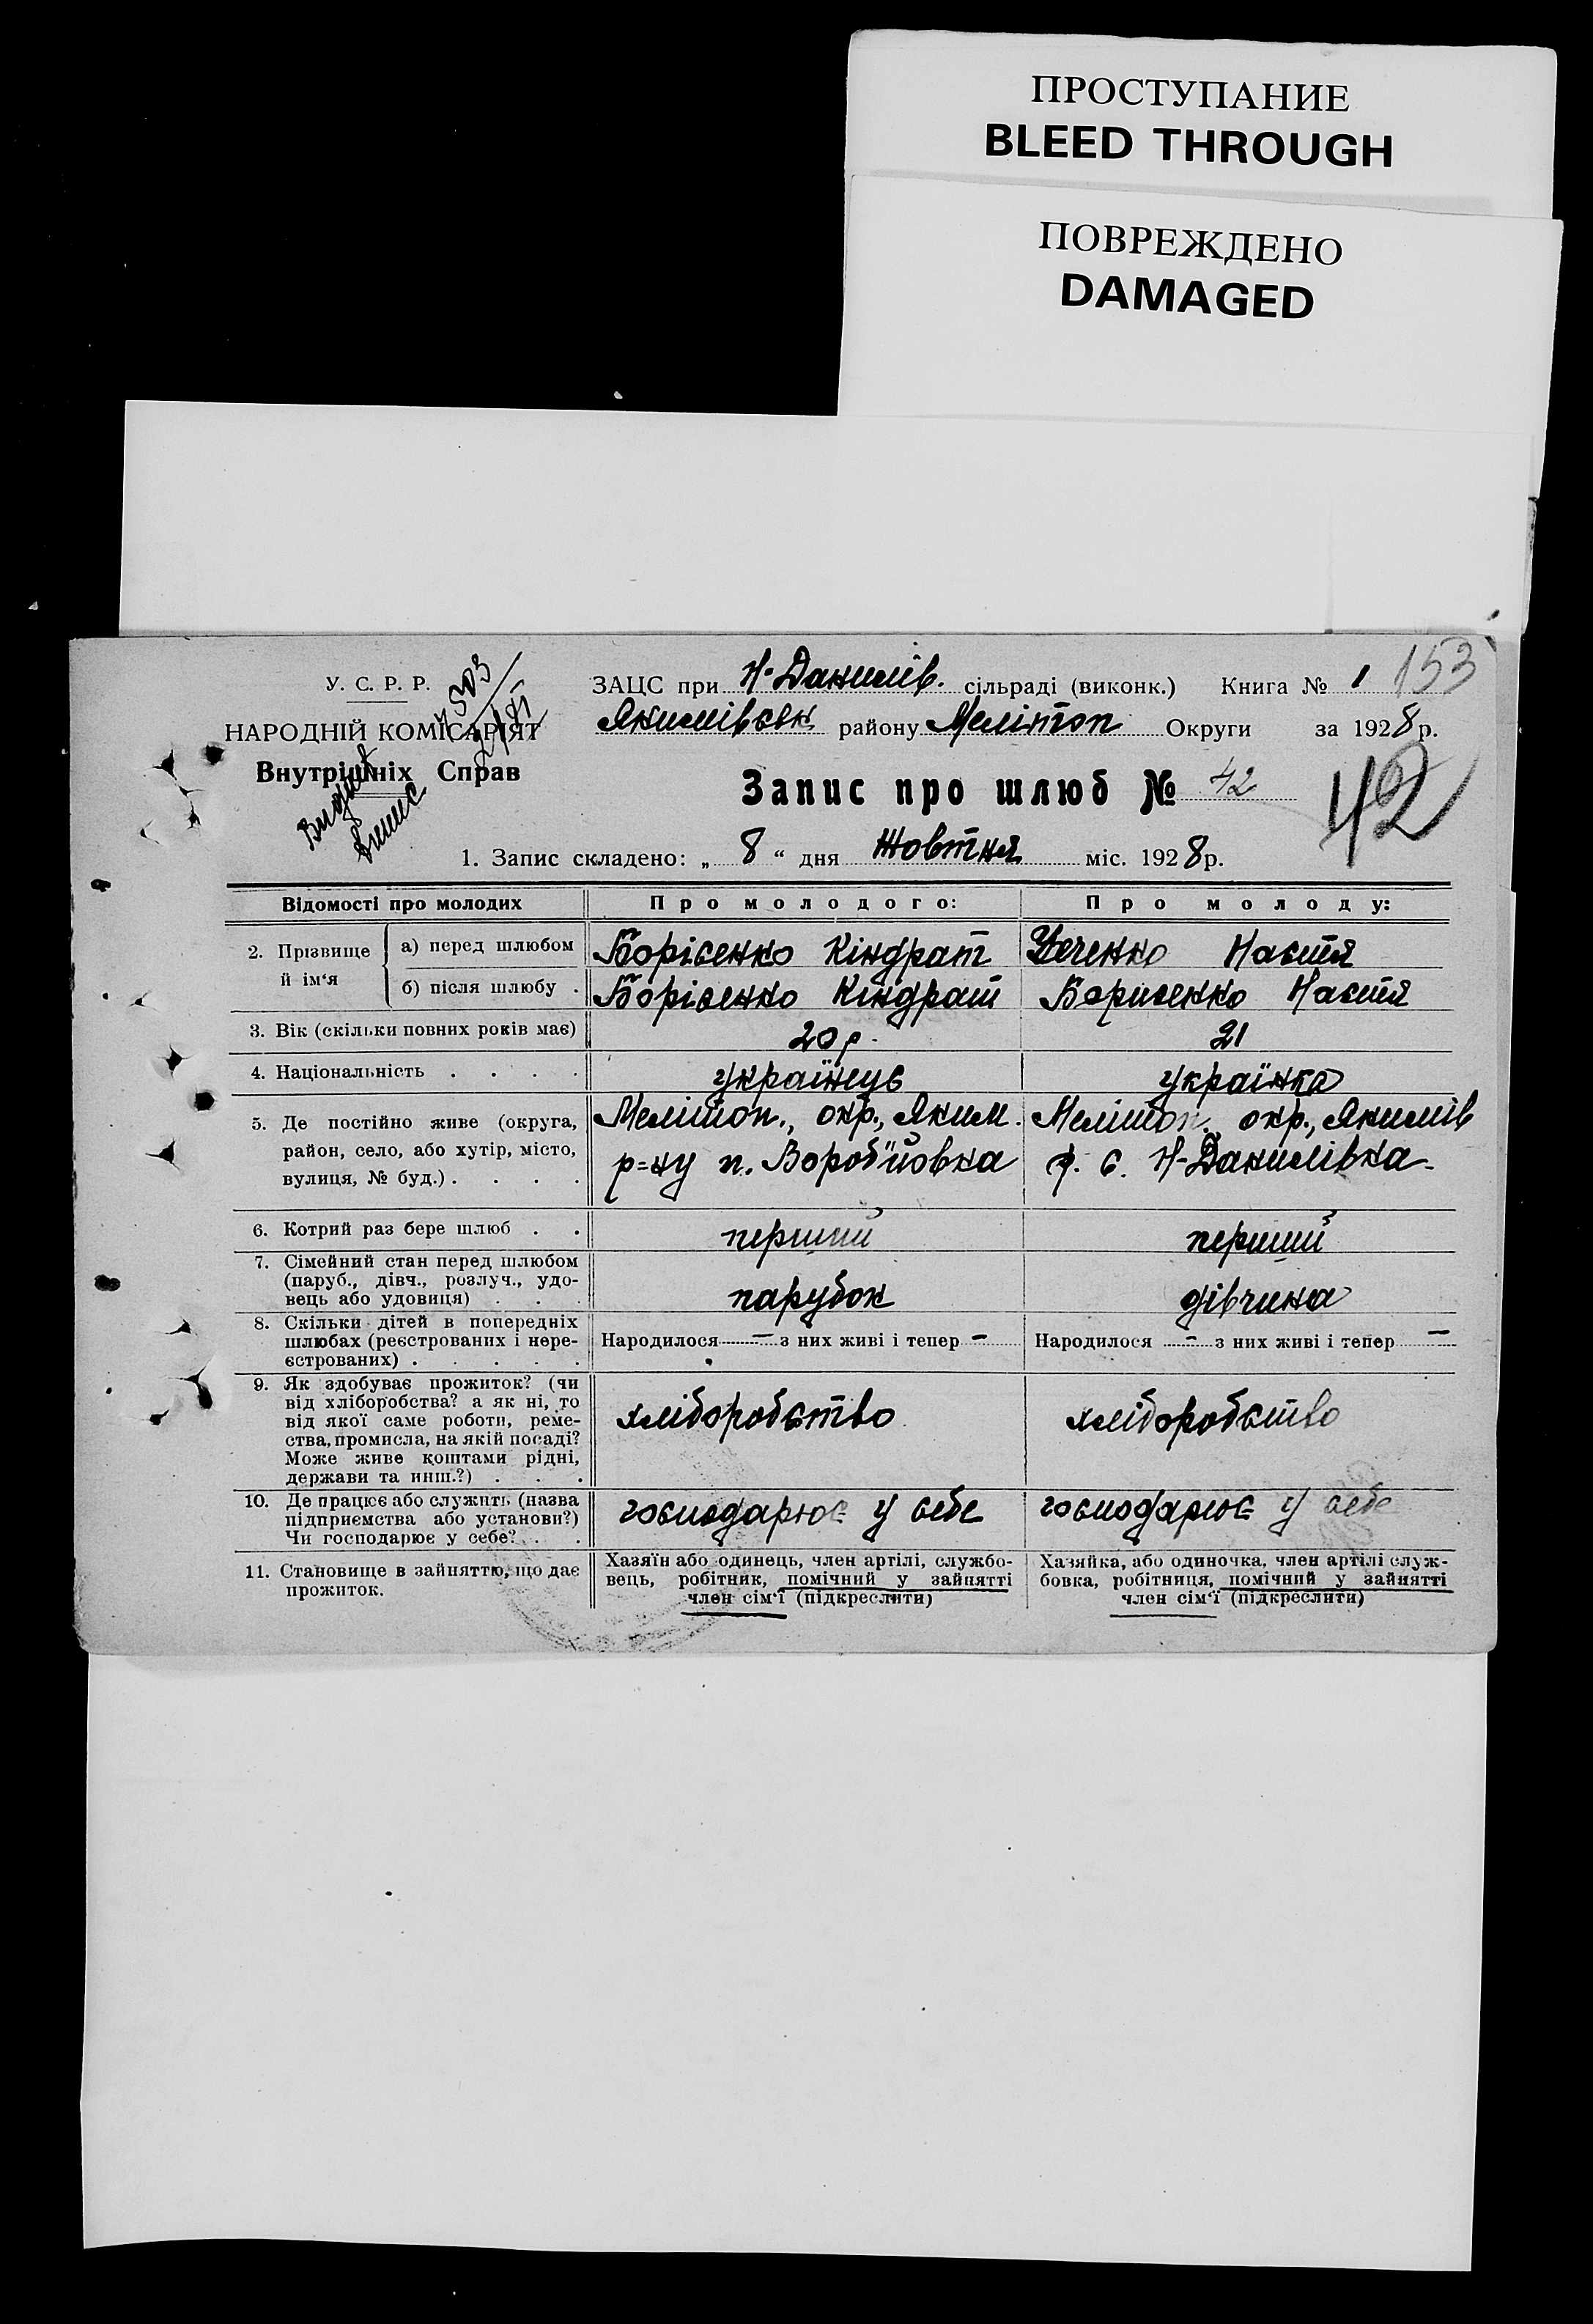 ПРОСТУПАНИЕ
BLEED THROUGH
ПОВРЕЖДЕНО
DAMAGED
153
У. С. Р. Р.
НАРОДНІЙ КОМІСАРІЯТ
Внутрішніх Справ
ЗАЦС при Н-Данилів. сільраді (виконк.) Книга № 1
Якимівськ району Мелітоп Округи за 1928 р.
Запис про шлюб № 42
42
1. Запис складено: „ 8 “ дня Жовтня міс. 1928 р.
Відомості про молодих Про молодого: Про молоду:
2. Прізвище й ім‘я а) перед шлюбом Борісенко Кіндрат Настя
б) після шлюбу . Борісенко Кіндрат Борисенко Настя
3. Вік (скільки повних років має) 20 р. 21
4. Національність . . . . українець українка
5. Де постійно живе (округа, Мелітоп., окр., Яким. Мелітоп. окр., Якимів
район, село, або хутір, місто, р=ну п. Вороб'йовка р. с. Н-Данилівка
вулиця, № буд.) . . . .
6. Котрий раз бере шлюб . . перший перший
7. Сімейний стан перед шлюбом
(паруб., дівч., розлуч., удо-
вець або удовиця) . . . парубок дівчина
8. Скільки дітей в попередніх
шлюбах (реєстрованих і нере- Народилося — з них живі і тепер — Народилося — з них живі і тепер —
єстрованих) . . . . .
9. Як здобуває прожиток? (чи
від хліборобства? а як ні, то хліборобство хліборобство
від якої саме роботи, реме-
ства, промисла, на якій посаді?
Може живе коштами рідні,
держави та инш.?) . . .
10. Де працює або служить (назва господарює у себе господарює у себе
підприємства або установи?)
Чи господарює у себе? . .
11. Становище в зайняттю, що дає
прожиток.
Хазяїн або одинець, член артілі, службо-
вець, робітник, помічний у зайнятті
член сім‘ї (підкреслити)
Хазяйка, або одиночка, член артілі служ-
бовка, робітниця, помічний у зайнятті
член сім‘ї (підкреслити)